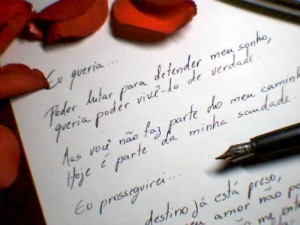 Eu queria...
Poder lutar para defender meu sonho,
queria poder vivê-lo de verdade.
Mas você não faz parte do meu caminh
Hoje é parte da minha saudade.
Eu prosseguirei...
destino já está preso,
meu amor não po
não me ent